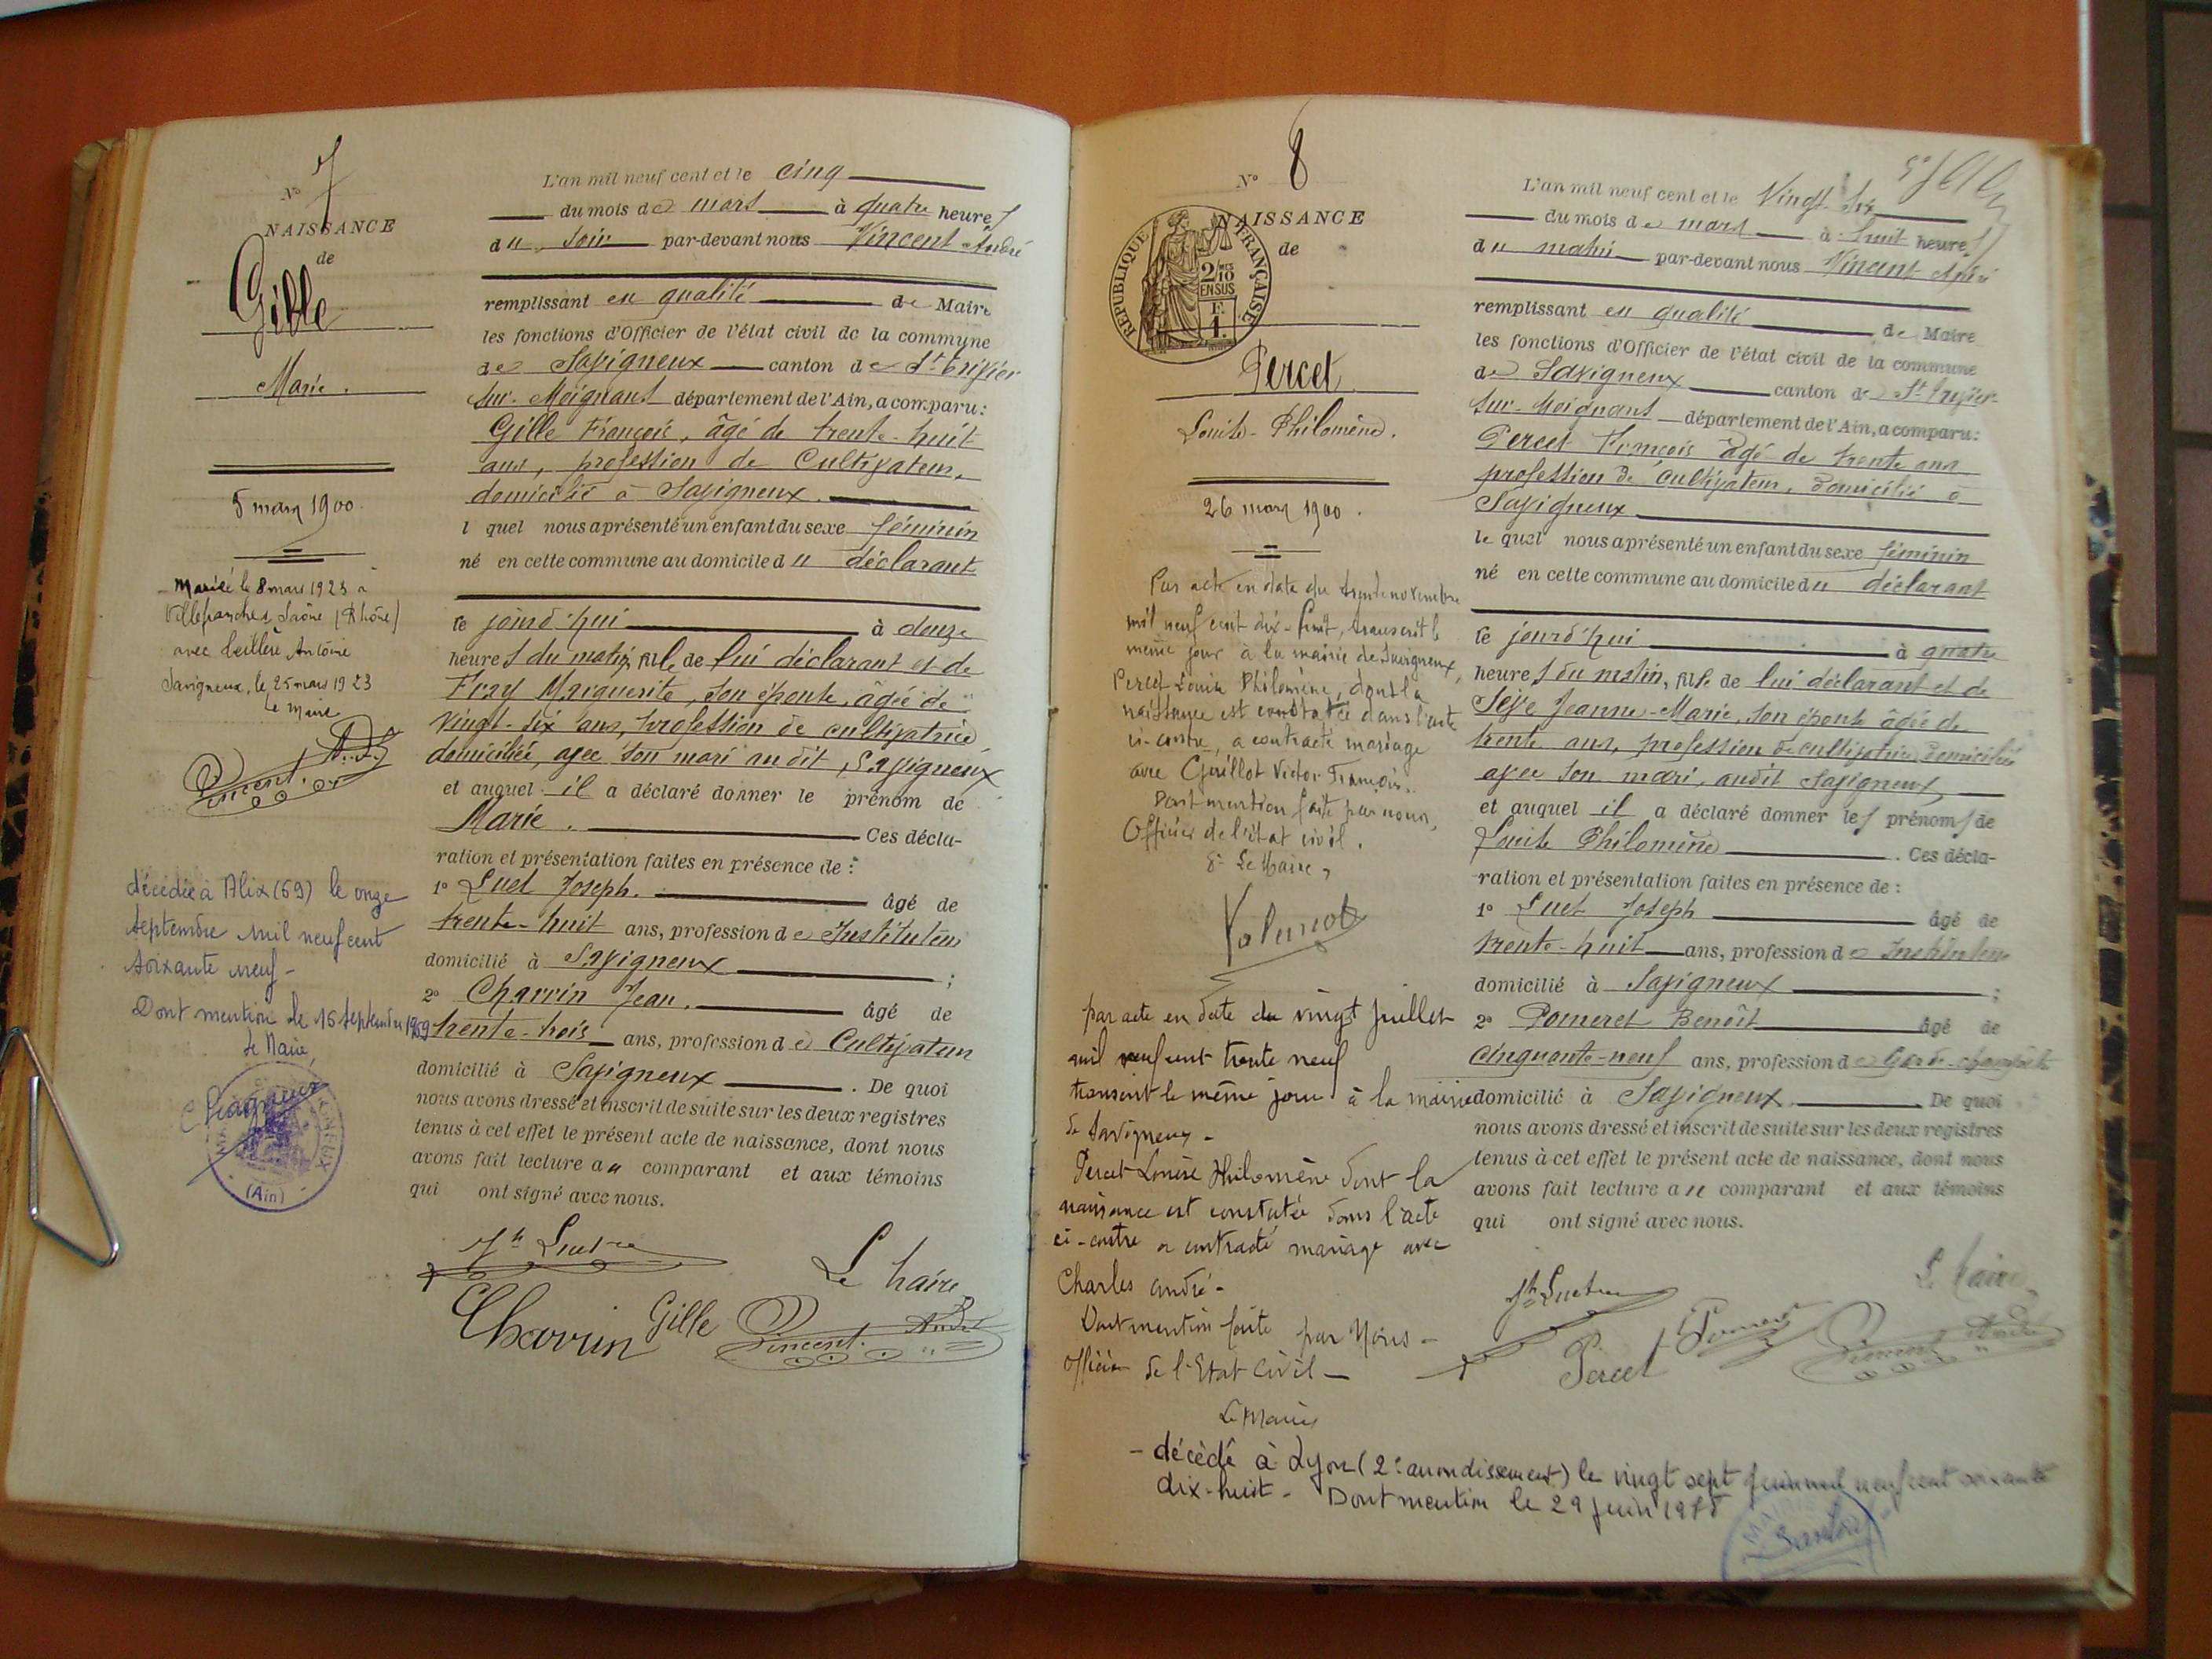 N° 7
NAISSANCE
de
Gille
Marie.
5 mars 1900.
Mariée le 8 mars 1923 à
Villefranche s Saône (Rhône)
avec Antoine
Savigneux, le 25 mars 1923
Le Maire
Vincent
décédée à Alix (69) le onze
septembre mil neuf cent
soixante neuf -
Dont mention le 15 septembre 1969
Le Maire,
(Ain)
L'an mil neuf cent et le cinq
du mois de mars à quatre heures
du soir par-devant nous Vincent André
remplissant en qualité de Maire
les fonctions d'Officier de l'état civil de la commune
de Savigneux canton de St Trivier
sur-Moignans département de l'Ain, a comparu:
Gille François, âgé de trente-huit
ans, profession de Cultivateur,
domicilié à Savigneux.
l quel nous a présenté un enfant du sexe féminin
né en cette commune au domicile du déclarant
ce jourd'hui à douze
heures du matin, fille de lui déclarant et de
Fray Marguerite, son épouse, âgée de
vingt-six ans, profession de cultivatrice,
domiciliée, avec son mari audit, Savigneux
et auquel il a déclaré donner le prénom de
Marie. Ces décla-
ration et présentation faites en présence de :
1° Luet Joseph. âgé de
trente-huit ans, profession de Instituteur
domicilié à Savigneux ;
2° Charvin Jean. âgé de
trente-trois ans, profession de Cultivateur
domicilié à Savigneux . De quoi
nous avons dressé et inscrit de suite sur les deux registres
tenus à cet effet le présent acte de naissance, dont nous
avons fait lecture au comparant et aux témoins
qui ont signé avec nous.
Jh Luet
Le Maire
Charvin Gille Vincent André
N° 8
NAISSANCE
de
REPUBLIQUE FRANÇAISE
2/10 MES
EN SUS
F.
1.
Percet
Louise-Philomène.
26 mars 1900.
Par acte en date du trente novembre
mil neuf cent dix-huit, transcrit le
même jour à la mairie de Savigneux,
Percet Louise Philomène, dont la
naissance est constatée dans l'acte
ci-contre, a contracté mariage
avec Guillot Victor François.
Dont mention faite par nous,
Officier de l'état civil.
Le Maire,
par acte en date du vingt juillet
mil neuf cent trente neuf
transcrit le même jour à la mairie
de Savigneux -
Percet Louise Philomène dont la
naissance est constatée dans l'acte
ci-contre a contracté mariage avec
Charles André -
Dont mention faite par Nous -
officier de l'Etat Civil -
Le Maire
- décédé à Lyon (2e arrondissement) le vingt sept juin mil neuf cent soixante
dix-huit - Dont mention le 29 juin 1978
L'an mil neuf cent et le Vingt-six
du mois de mars à huit heures
du matin par-devant nous Vincent André
remplissant en qualité de Maire
les fonctions d'Officier de l'état civil de la commune
de Savigneux canton de St Trivier-
sur-Moignans département de l'Ain, a comparu:
Percet François âgé de trente ans
profession de cultivateur, domicilié à
Savigneux
le quel nous a présenté un enfant du sexe féminin
né en cette commune au domicile du déclarant
ce jourd'hui à quatre
heures du matin, fille de lui déclarant et de
Sève Jeanne-Marie, son épouse âgée de
trente ans, profession de cultivatrice domiciliée
avec son mari, audit Savigneux,
et auquel il a déclaré donner les prénoms de
Louise Philomène . Ces décla-
ration et présentation faites en présence de :
1° Luet Joseph âgé de
trente-huit ans, profession de Instituteur
domicilié à Savigneux ;
2° Pomeret Benoît âgé de
Cinquante-neuf ans, profession de Garde-champêtre
domicilié à Savigneux . De quoi
nous avons dressé et inscrit de suite sur les deux registres
tenus à cet effet le présent acte de naissance, dont nous
avons fait lecture au comparant et aux témoins
qui ont signé avec nous.
Jh Luet
Le Maire
Percet Pomeret Vincent André